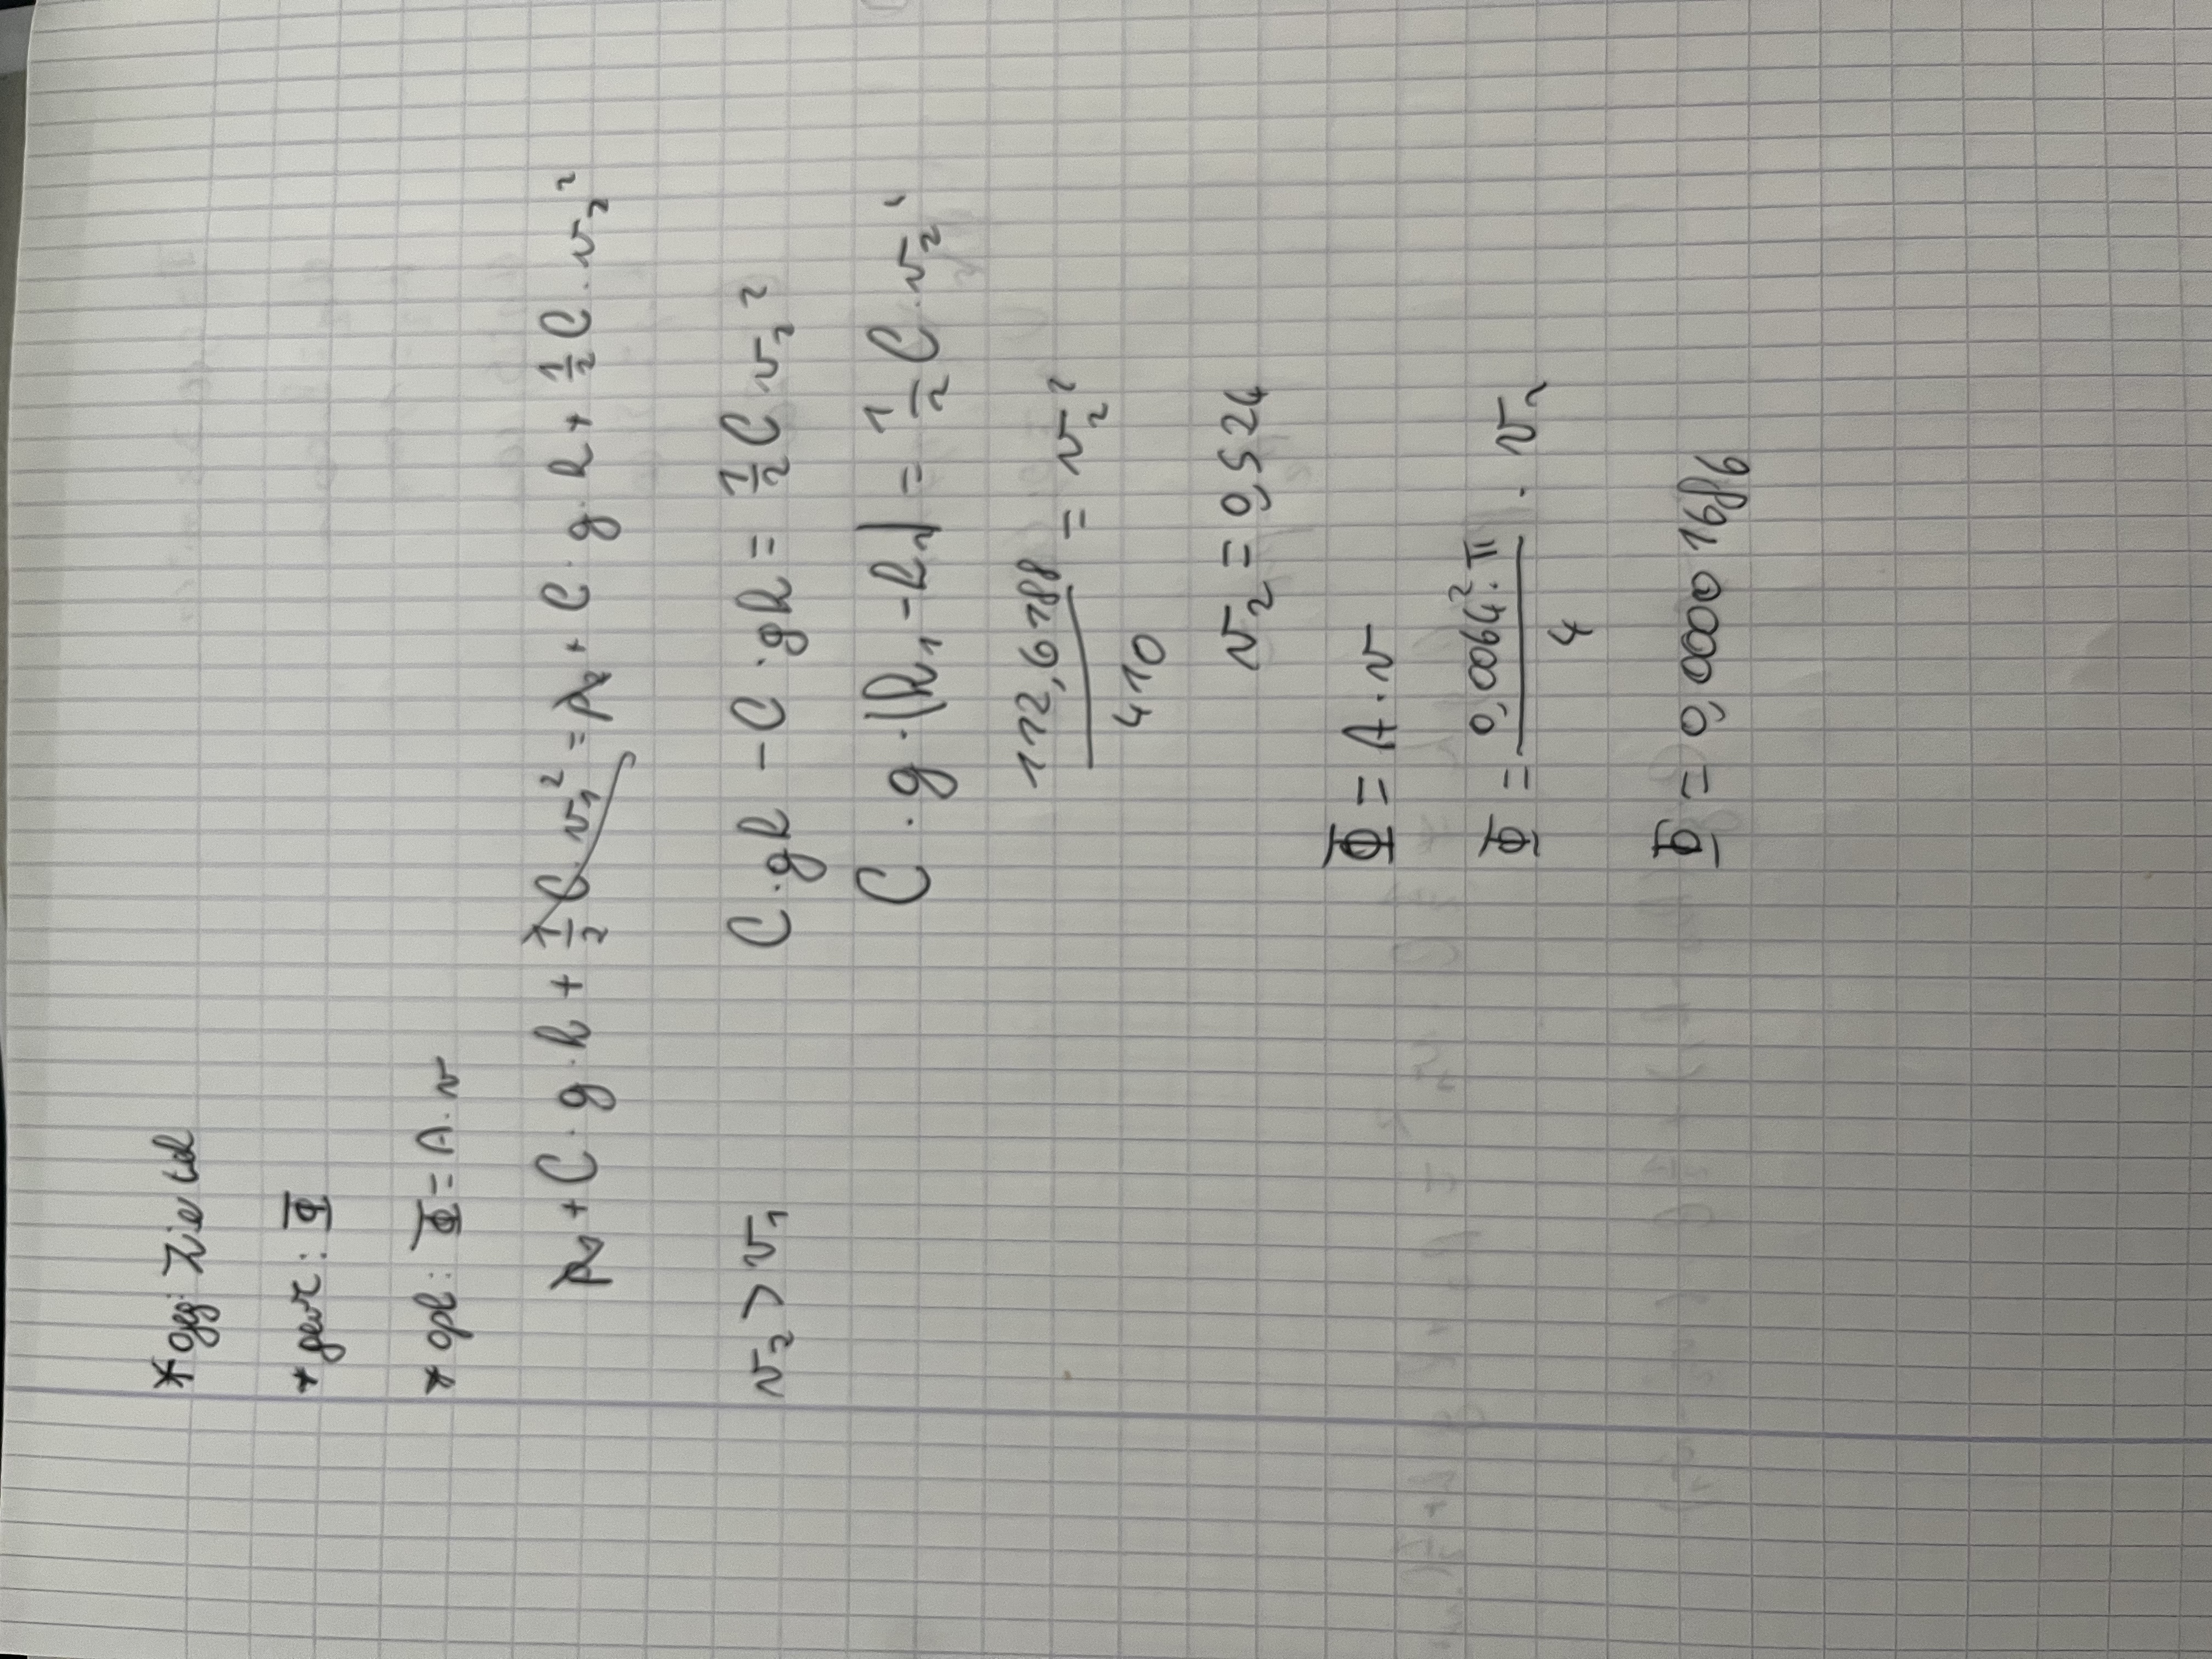 * geg: Zie tel
* gevr: Φ
* opl: Φ = A . v
p₁ + C . g . h + 1/2 C . v₁² = p₂ + C . g . h + 1/2 C . v₂²
v₂ > v₁ C . gh - C . gh = 1/2 C v₂²
C . g . (h₁ - h₂) = 1/2 C . v₂²
112,6188 / 410 = v₂²
v₂ = 0,524
Φ = A . v
Φ = 0,0064² . π / 4 . v₂
Φ = 0,0000 1686